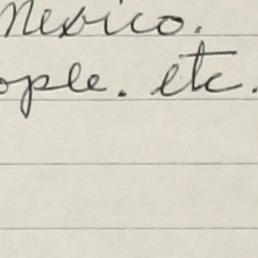 Mexico.
ople. etc.